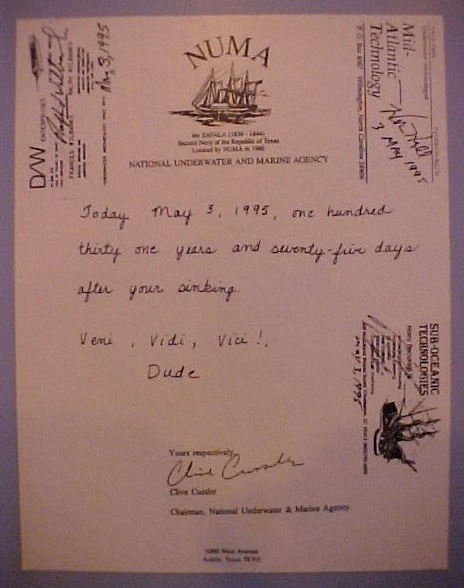 NUMA
the ZAVALA (1836 - 1844)
Second Navy of the Republic of Texas
Located by NUMA in 1986
NATIONAL UNDERWATER AND MARINE AGENCY
DAW
ENTERPRISES
May 3, 1995
Mid-
Atlantic
Technology
P. O. Box Wilmington, North Carolina
3 MAY 1995
Today May 3, 1995, one hundred
thirty one years and seventy-five days
after your sinking.
Veni, Vidi, Vici!,
Dude
SUB-OCEANIC
TECHNOLOGIES
Yours respectively,
Clive Cussler
Clive Cussler
Chairman, National Underwater & Marine Agency
West Avenue
Austin, Texas